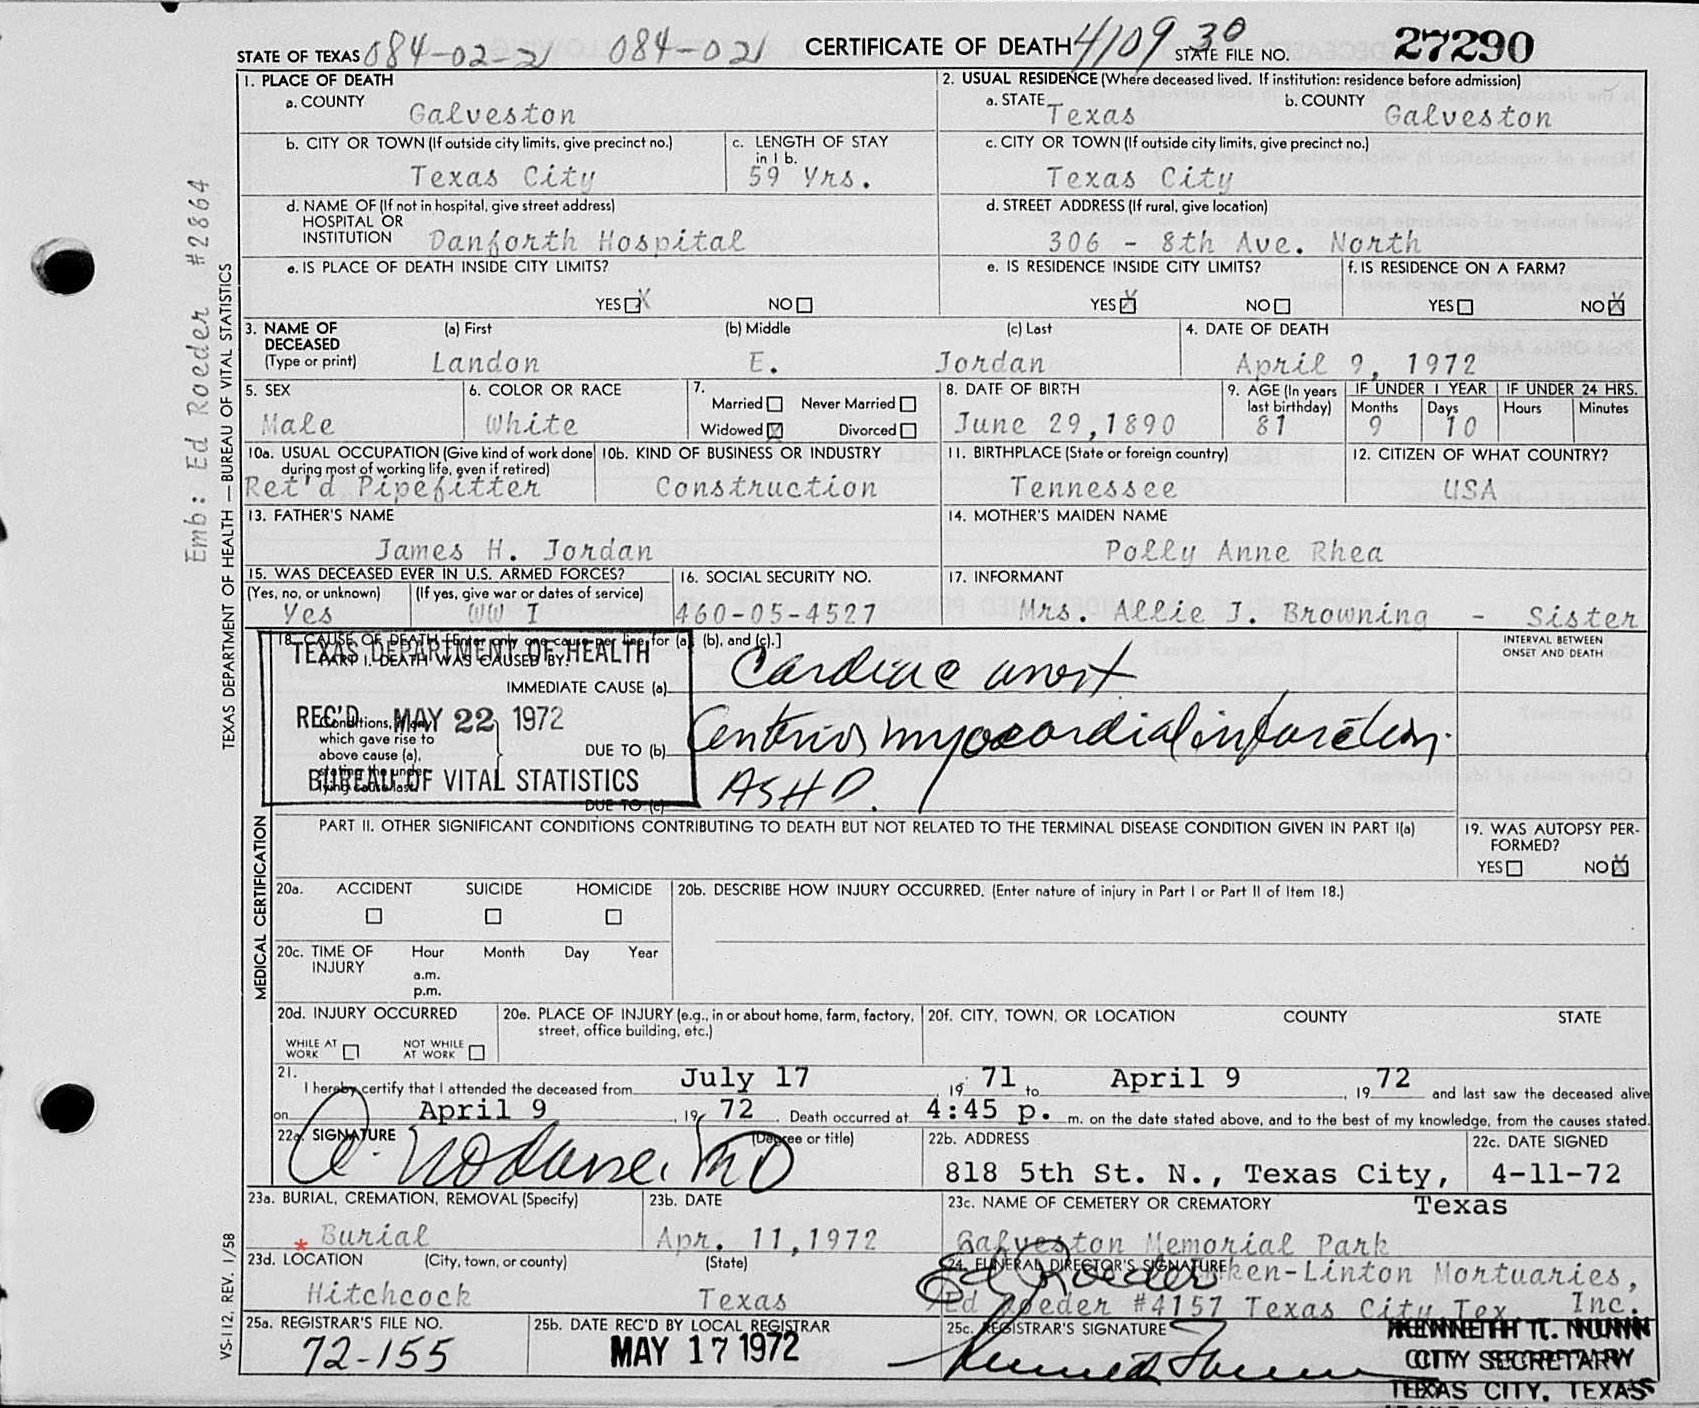 STATE OF TEXAS 084-02-21 084-021 CERTIFICATE OF DEATH 4109 30 STATE FILE NO. 27290
1. PLACE OF DEATH
a. COUNTY
Galveston
2. USUAL RESIDENCE (Where deceased lived. If institution: residence before admission)
a. STATE b. COUNTY
Texas Galveston
b. CITY OR TOWN (If outside city limits, give precinct no.)
Texas City
c. LENGTH OF STAY
in 1 b.
59 Yrs.
c. CITY OR TOWN (If outside city limits, give precinct no.)
Texas City
d. NAME OF (If not in hospital, give street address)
HOSPITAL OR
INSTITUTION Danforth Hospital
d. STREET ADDRESS (If rural, give location)
306 - 8th Ave. North
e. IS PLACE OF DEATH INSIDE CITY LIMITS?
YES X NO
e. IS RESIDENCE INSIDE CITY LIMITS?
YES X NO
f. IS RESIDENCE ON A FARM?
YES NO X
3. NAME OF
DECEASED
(Type or print)
(a) First (b) Middle (c) Last
Landon E. Jordan
4. DATE OF DEATH
April 9, 1972
5. SEX
Male
6. COLOR OR RACE
White
7.
Married Never Married
Widowed X Divorced
8. DATE OF BIRTH
June 29,1890
9. AGE (In years
last birthday)
81
IF UNDER 1 YEAR
Months Days
9 10
IF UNDER 24 HRS.
Hours Minutes
10a. USUAL OCCUPATION (Give kind of work done
during most of working life, even if retired)
Ret'd Pipefitter
10b. KIND OF BUSINESS OR INDUSTRY
Construction
11. BIRTHPLACE (State or foreign country)
Tennessee
12. CITIZEN OF WHAT COUNTRY?
USA
13. FATHER'S NAME
James H. Jordan
14. MOTHER'S MAIDEN NAME
Polly Anne Rhea
15. WAS DECEASED EVER IN U.S. ARMED FORCES?
(Yes, no, or unknown) (If yes, give war or dates of service)
Yes WW I
16. SOCIAL SECURITY NO.
460-05-4527
17. INFORMANT
Mrs. Allie J. Browning - Sister
18. CAUSE OF DEATH [Enter only one cause per line for (a), (b), and (c).]
PART I. DEATH WAS CAUSED BY:
TEXAS DEPARTMENT OF HEALTH
REC'D MAY 22 1972
BUREAU OF VITAL STATISTICS
INTERVAL BETWEEN
ONSET AND DEATH
IMMEDIATE CAUSE (a) Cardiac arrest
Conditions, if any,
which gave rise to
above cause (a),
stating the under-
lying cause last.
DUE TO (b) myocardial infarction.
DUE TO (c) ASHD.
PART II. OTHER SIGNIFICANT CONDITIONS CONTRIBUTING TO DEATH BUT NOT RELATED TO THE TERMINAL DISEASE CONDITION GIVEN IN PART I(a)
19. WAS AUTOPSY PER-
FORMED?
YES NO X
20a. ACCIDENT SUICIDE HOMICIDE
20b. DESCRIBE HOW INJURY OCCURRED. (Enter nature of injury in Part I or Part II of Item 18.)
20c. TIME OF
INJURY
Hour Month Day Year
a.m.
p.m.
20d. INJURY OCCURRED
WHILE AT
WORK
NOT WHILE
AT WORK
20e. PLACE OF INJURY (e.g., in or about home, farm, factory,
street, office building, etc.)
20f. CITY, TOWN, OR LOCATION COUNTY STATE
21.
I hereby certify that I attended the deceased from July 17 19 71 to April 9, 19 72 and last saw the deceased alive
on April 9, 19 72. Death occurred at 4:45 p. m. on the date stated above, and to the best of my knowledge, from the causes stated.
22a. SIGNATURE (Degree or title)
MD
22b. ADDRESS
818 5th St. N., Texas City,
Texas
22c. DATE SIGNED
4-11-72
23a. BURIAL, CREMATION, REMOVAL (Specify)
* Burial
23b. DATE
Apr. 11,1972
23c. NAME OF CEMETERY OR CREMATORY
Galveston Memorial Park
23d. LOCATION (City, town, or county) (State)
Hitchcock Texas
24. FUNERAL DIRECTOR'S SIGNATURE
Ed Roeder ken-Linton Mortuaries,
/Ed Roeder #4157 Texas City Tex Inc.
25a. REGISTRAR'S FILE NO.
72-155
25b. DATE REC'D BY LOCAL REGISTRAR
MAY 17 1972
25c. REGISTRAR'S SIGNATURE
KENNETH T. NUNN
CITY SECRETARY
TEXAS CITY, TEXAS
Emb: Ed Roeder #2864
TEXAS DEPARTMENT OF HEALTH — BUREAU OF VITAL STATISTICS
MEDICAL CERTIFICATION
VS-112, REV. 1/58